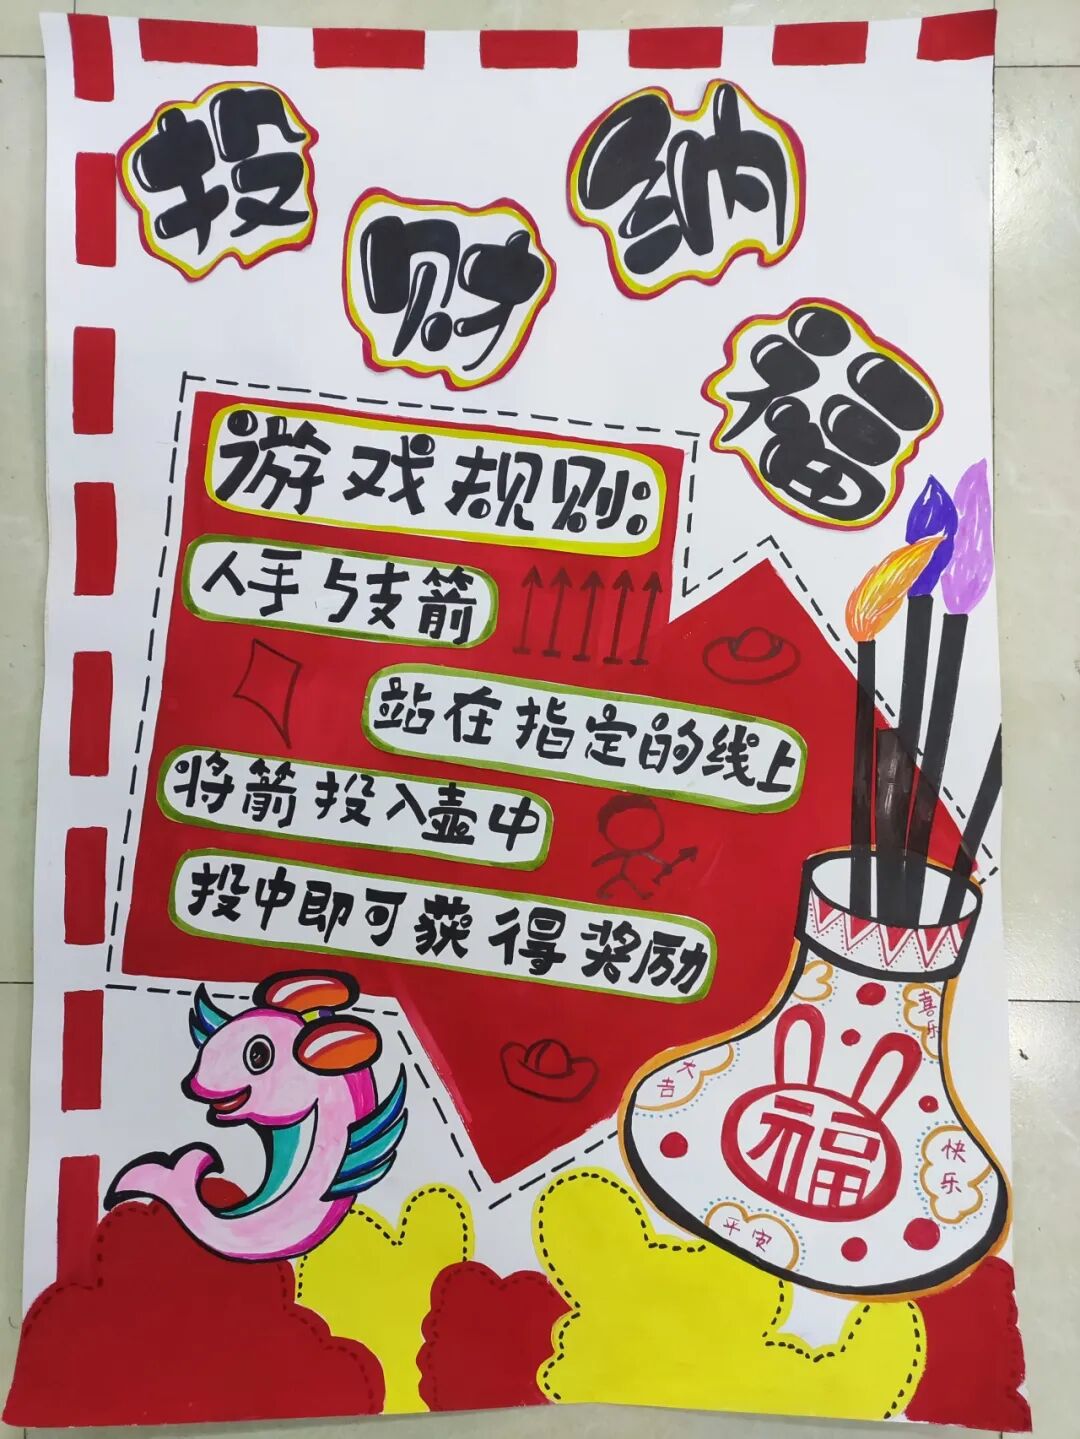 投财纳福
游戏规则:
人手5支箭
站在指定的线上
将箭投入壶中
投中即可获得奖励
喜乐
大吉
福
快乐
平安